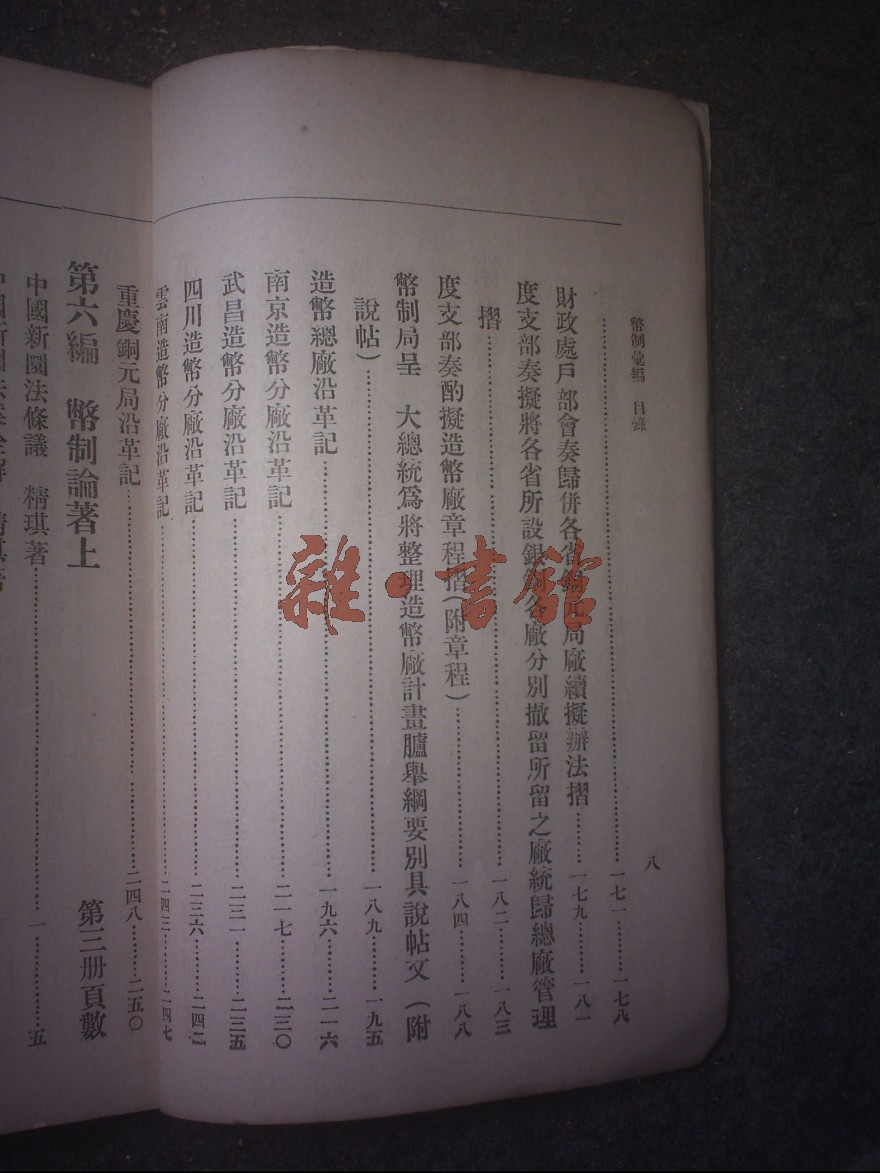 幣制彙編 目錄 八
一七一 一七八
財政處戶部會奏歸併各省銅元局廠續擬辦法摺 一七九 一八一
度支部奏擬將各省所設銀銅各廠分別撤留所留之廠統歸總廠管理
摺 一八二 一八三
度支部奏酌擬造幣廠章程摺(附章程) 一八四 一八八
幣制局呈 大總統爲將整理造幣廠計畫臚舉綱要別具說帖文(附
說帖) 一八九 一九五
造幣總廠沿革記 一九六 二一六
南京造幣分廠沿革記 二一七 二三〇
武昌造幣分廠沿革記 二三一 二三五
四川造幣分廠沿革記 二三六 二四二
雲南造幣分廠沿革記 二四三 二四七
重慶銅元局沿革記 二四八 二五〇
第六編 幣制論著上 第三册頁數
中國新圜法條議 精琪著 一 五
雜·書館